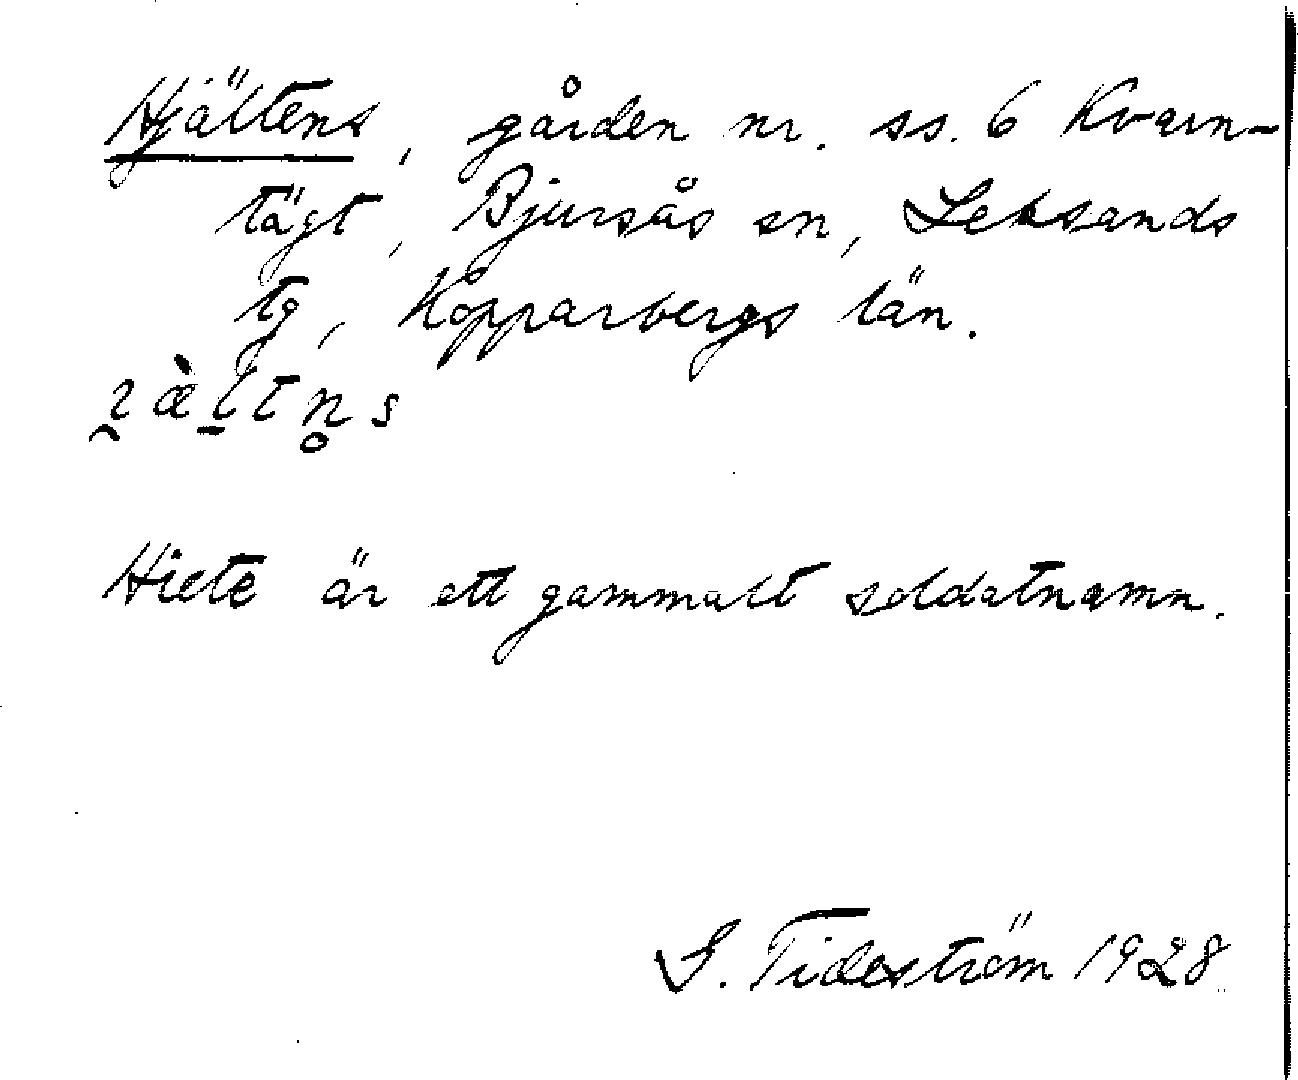 Hjältens, gården nr. ss. 6 Kvarn-
tägt, Bjursås sn, Leksands
tg, Kopparbergs län.
Hiete är ett gammalt soldatnamn.
S. Tideström 1928